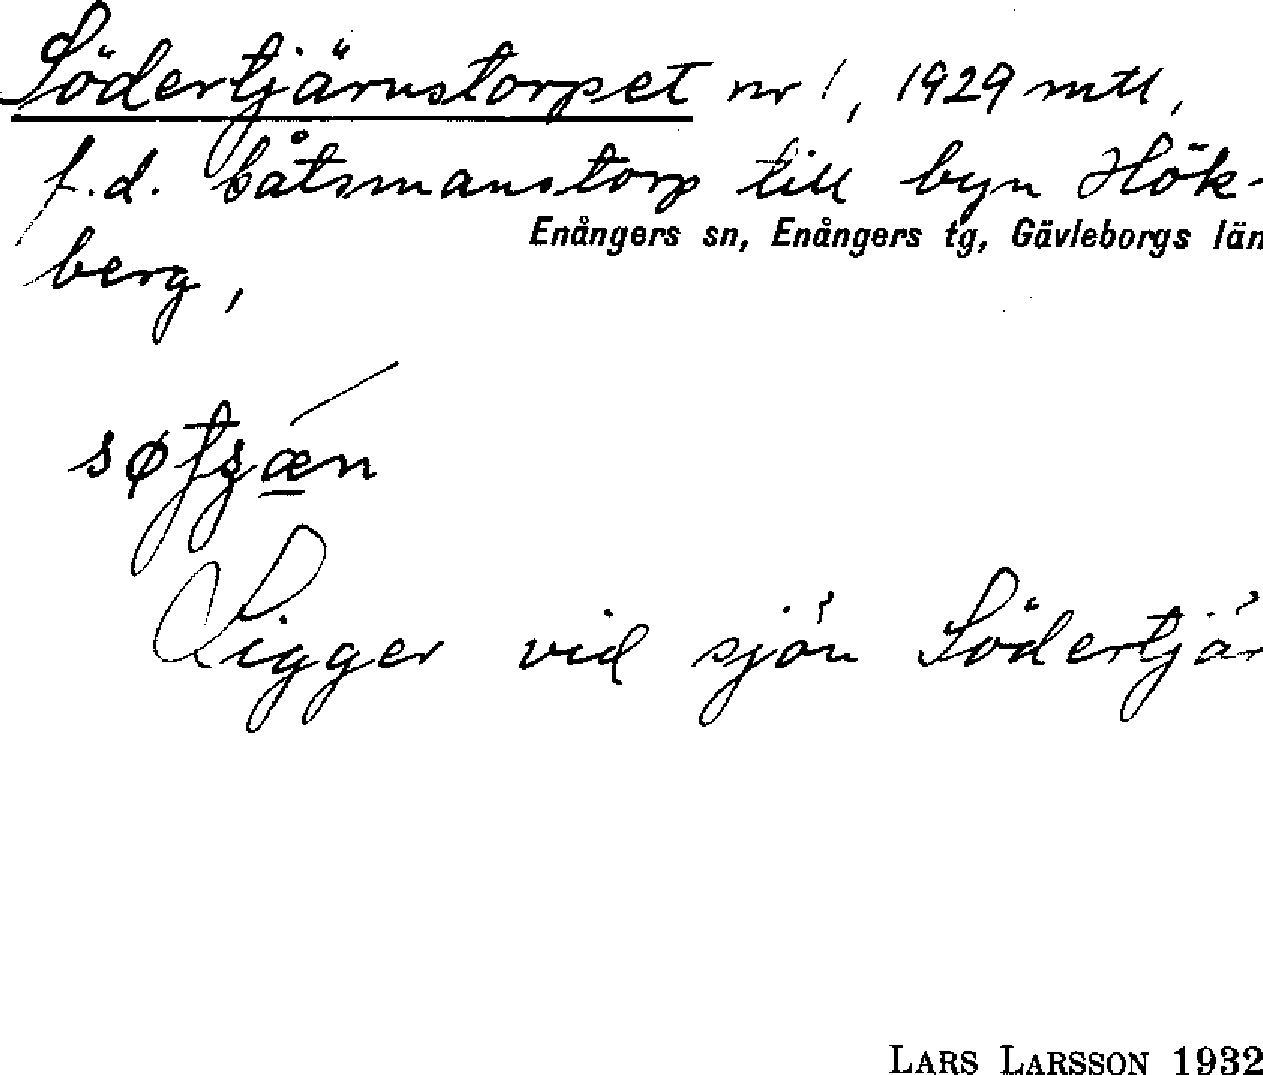 Södertjärnstorpet nr 1, 1929 mtl,
f.d. båtsmanstorp till byn Hök-
Enångers sn, Enångers tg, Gävleborgs län
berg,
Ligger vid sjön Södertjär
LARS LARSSON 1932